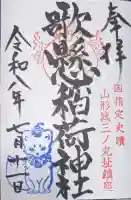 奉拝
国指定史蹟
山形城三ノ丸址鎮座
歌懸稲荷神社
令和八年